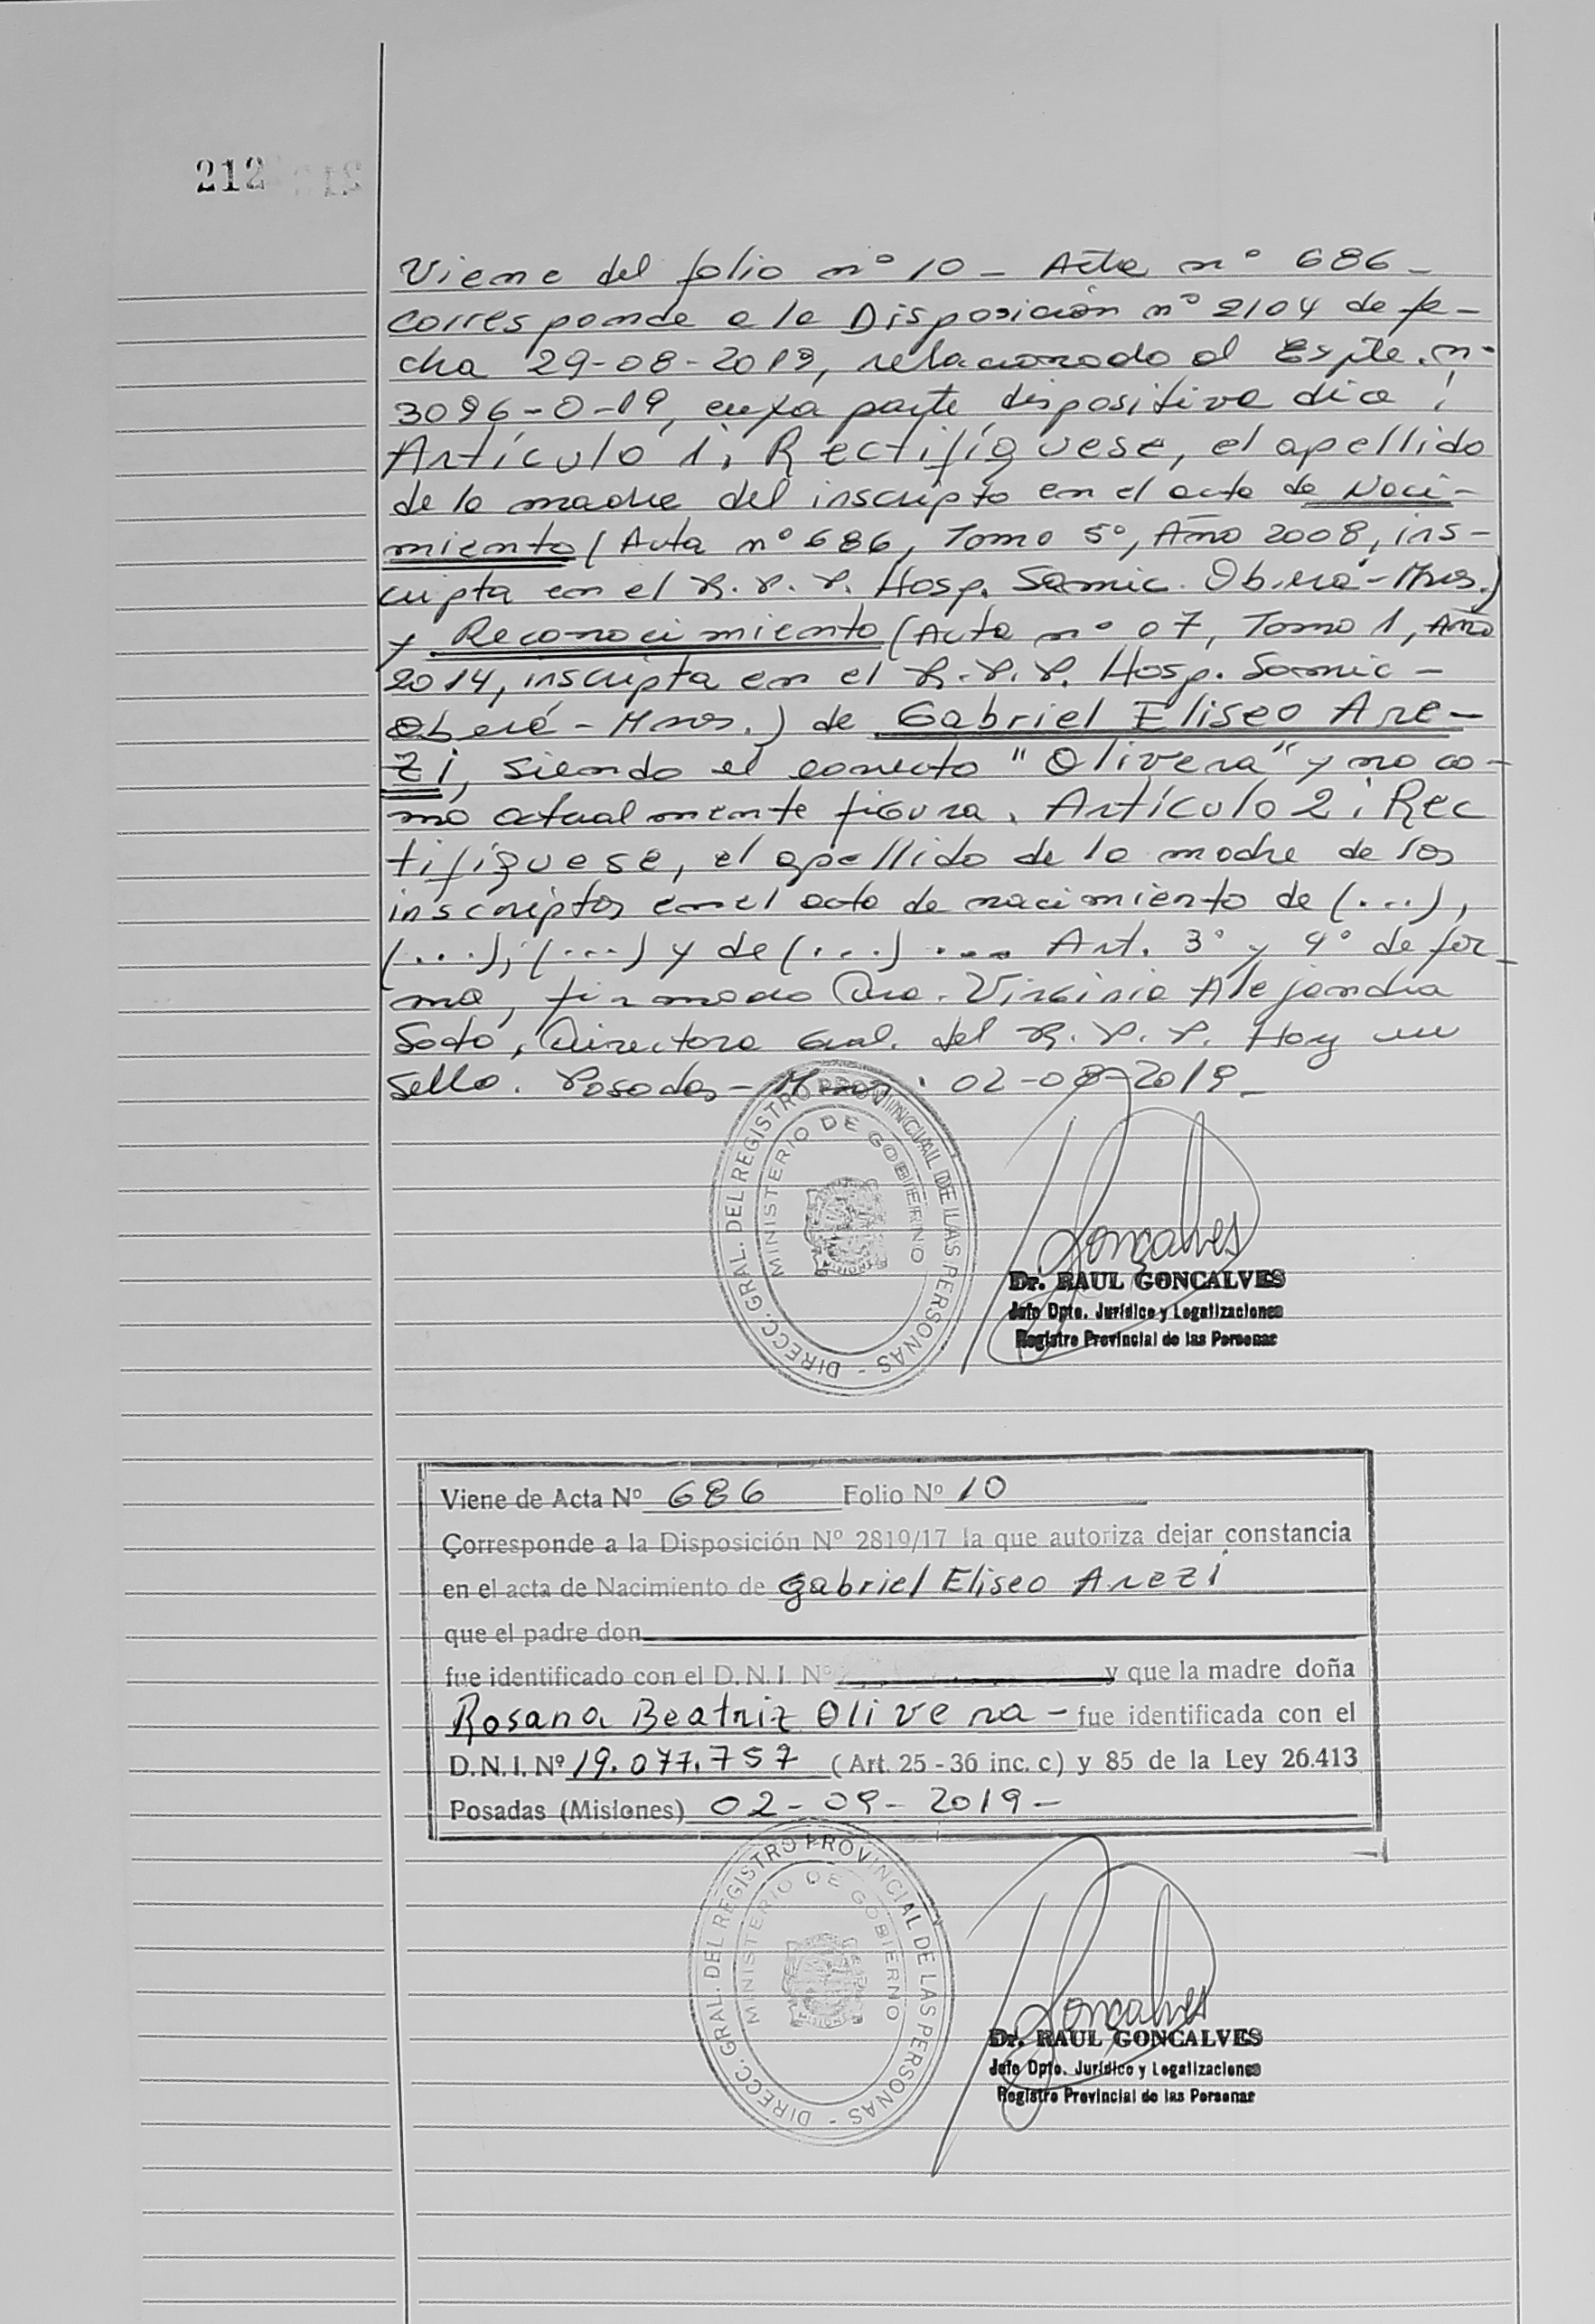 212
Viene del folio nº 10 - Acta nº 686 -
corresponde a la Disposición nº 2104 de fe-
cha 29-08-2019, relacionado al Expte. nº
3096-O-19, cuya parte dispositiva dice:
Artículo 1: Rectifíquese, el apellido
de la madre del inscripto en el acta de Naci-
miento (Acta nº 686, Tomo 5º, Año 2008, ins-
cripta en el R.P.P. Hosp. Samic. Oberá-Mnes.)
y Reconocimiento (Acta nº 07, Tomo 1, Año
2014, inscripta en el R.P.P. Hosp. Samic -
Oberá - Mnes.) de Gabriel Eliseo Are-
zi, siendo el correcto "Olivera" y no co-
mo actualmente figura. Artículo 2: Rec
tifíquese, el apellido de la madre de los
inscriptos en el acta de nacimiento de (...),
(....), (....) y de (....) .... Art. 3º y 4º de for-
ma, firmado Dra. Virginia Alejandra
Soto, Directora Gral. del R.P.P. Hay un
sello. Posadas - Mnes: 02-09-2019 -
DIRECC. GRAL. DEL REGISTRO PROVINCIAL DE LAS PERSONAS -
MINISTERIO DE GOBIERNO
MISIONES
Goncalves
Dr. RAUL GONCALVES
Jefe Dpto. Jurídico y Legalizaciones
Registro Provincial de las Personas
Viene de Acta Nº 686 Folio Nº 10
Corresponde a la Disposición Nº 2819/17 la que autoriza dejar constancia
en el acta de Nacimiento de Gabriel Eliseo Arezi
que el padre don
fue identificado con el D.N.I. Nº y que la madre doña
Rosana Beatriz Olivera - fue identificada con el
D.N.I. Nº 19.077.757 (Art. 25 - 36 inc. c) y 85 de la Ley 26.413
Posadas (Misiones) 02-09-2019-
DIRECC. GRAL. DEL REGISTRO PROVINCIAL DE LAS PERSONAS -
MINISTERIO DE GOBIERNO
MISIONES
Goncalves
Dr. RAUL GONCALVES
Jefe Dpto. Jurídico y Legalizaciones
Registro Provincial de las Personas